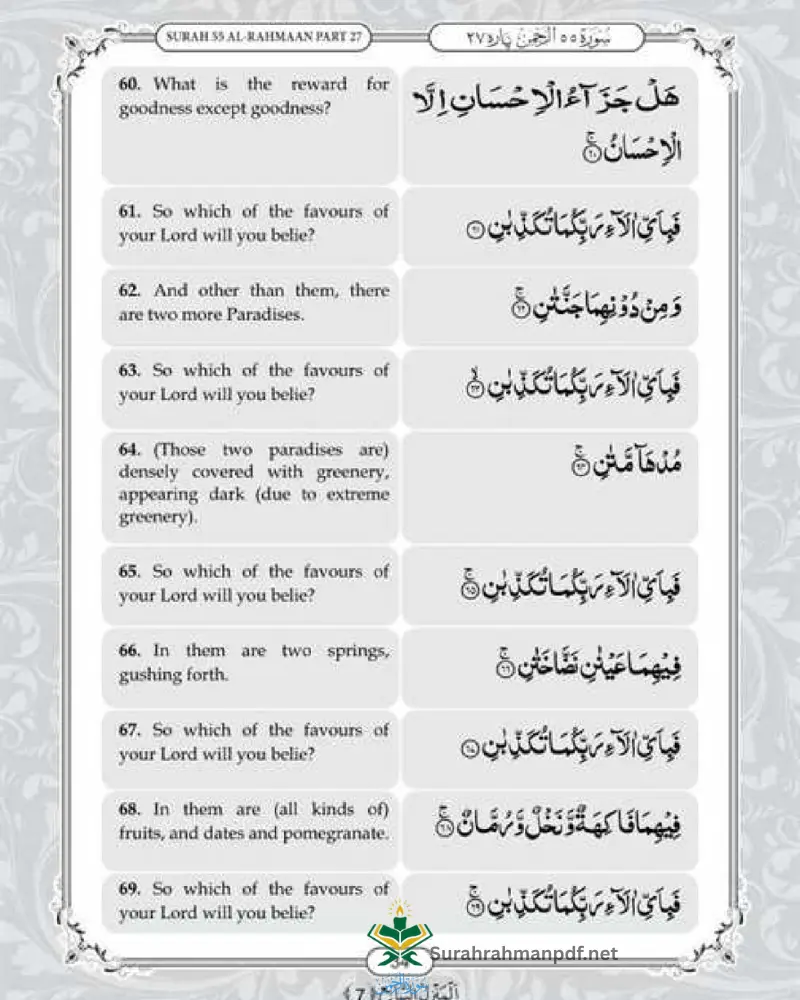 SURAH 55 AL-RAHMAAN PART 27
سُوۡرَة ٥٥ اَلرَّحۡمٰن پاره ٢٧
60. What is the reward for
goodness except goodness?
هَلۡ جَزَآءُ الۡاِحۡسَانِ اِلَّا
الۡاِحۡسَانُ ۚ‏﴿۶۰﴾
61. So which of the favours of
your Lord will you belie?
فَبِاَىِّ اٰلَآءِ رَبِّكُمَا تُكَذِّبٰنِ ﴿۶۱﴾
62. And other than them, there
are two more Paradises.
وَمِنۡ دُوۡنِهِمَا جَنَّتٰنِ​ۚ ﴿۶۲﴾
63. So which of the favours of
your Lord will you belie?
فَبِاَىِّ اٰلَآءِ رَبِّكُمَا تُكَذِّبٰنِۙ ﴿۶۳﴾
64. (Those two paradises are)
densely covered with greenery,
appearing dark (due to extreme
greenery).
مُدۡهَآمَّتٰنِ​ۚ ﴿۶۴﴾
65. So which of the favours of
your Lord will you belie?
فَبِاَىِّ اٰلَآءِ رَبِّكُمَا تُكَذِّبٰنِ​ۚ ﴿۶۵﴾
66. In them are two springs,
gushing forth.
فِيۡهِمَا عَيۡنٰنِ نَضَّاخَتٰنِ​ۚ ﴿۶۶﴾
67. So which of the favours of
your Lord will you belie?
فَبِاَىِّ اٰلَآءِ رَبِّكُمَا تُكَذِّبٰنِ ﴿۶۷﴾
68. In them are (all kinds of)
fruits, and dates and pomegranate.
فِيۡهِمَا فَاكِهَةٌ وَّنَخۡلٌ وَّرُمَّانٌ​ۚ ﴿۶۸﴾
69. So which of the favours of
your Lord will you belie?
فَبِاَىِّ اٰلَآءِ رَبِّكُمَا تُكَذِّبٰنِ​ۚ ﴿۶۹﴾
Surahrahmanpdf.net
﴿7﴾